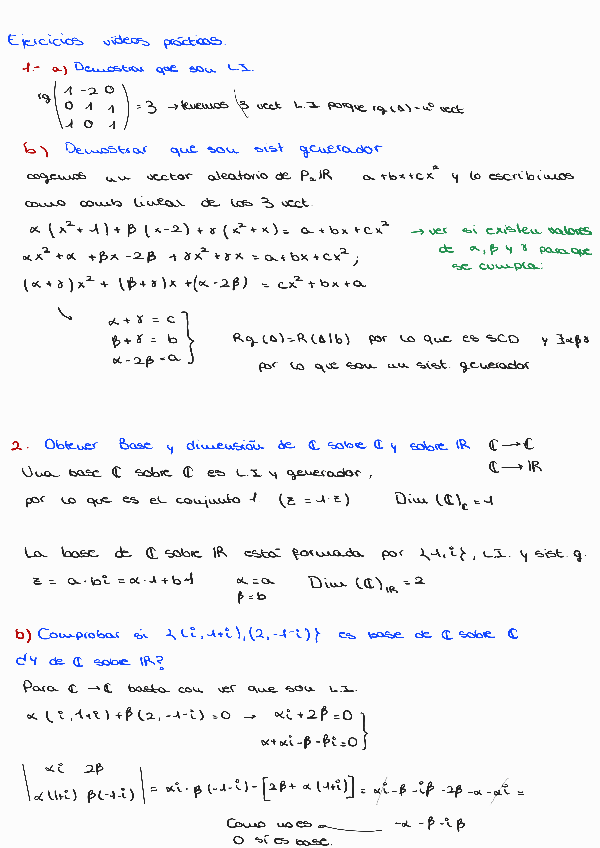 Ejercicios vídeos prácticos.
1.- a) Demostrar que sou L.I.
rg ( 1 -2 0
0 1 1
1 0 1 ) = 3 → tenemos 3 vect L.I porque rg(A)=nº vect
b) Demostrar que sou sist generador
cogemos un vector aleatorio de P₂ IR a+bx+cx² y lo escribimos
como comb lineal de los 3 vect.
α(x²+1)+β(x-2)+γ(x²+x)=a+bx+cx² → ver si existen valores
αx²+α+βx-2β+γx²+γx=a+bx+cx²; de α,β y γ para que
(α+γ)x²+(β+γ)x+(α-2β)=cx²+bx+a se cumpla:
α+γ=c
β+γ=b } Rg(A)=R(A|b) por lo que es SCD y ∃αβγ
α-2β=a por lo que sou un sist. generador
2. Obtener Base y dimensión de ℂ sobre ℂ y sobre IR ℂ→ℂ
Una base ℂ sobre ℂ es L.I y generador, ℂ→IR
por lo que es el conjunto 1 (z=1·z) Dim(ℂ)ℂ=1
La base de ℂ sobre IR está formada por {1,i}, L.I. y sist.g.
z=a·bi=α·1+b1 α=a Dim(ℂ)IR=2
β=b
b) Comprobar si {(i,1+i),(2,-1-i)} es base de ℂ sobre ℂ
d y de ℂ sobre IR?
Para ℂ→ℂ basta con ver que sou L.I.
α(i,1+i)+β(2,-1-i)=0 → αi+2β=0
α+αi-β-βi=0 }
| αi 2β
α(1+i) β(-1-i) | = αi·β(-1-i)-[2β+α(1+i)]=αi-β-iβ-2β-α-αi=
Como no es -α-β-iβ
0 sí es base.